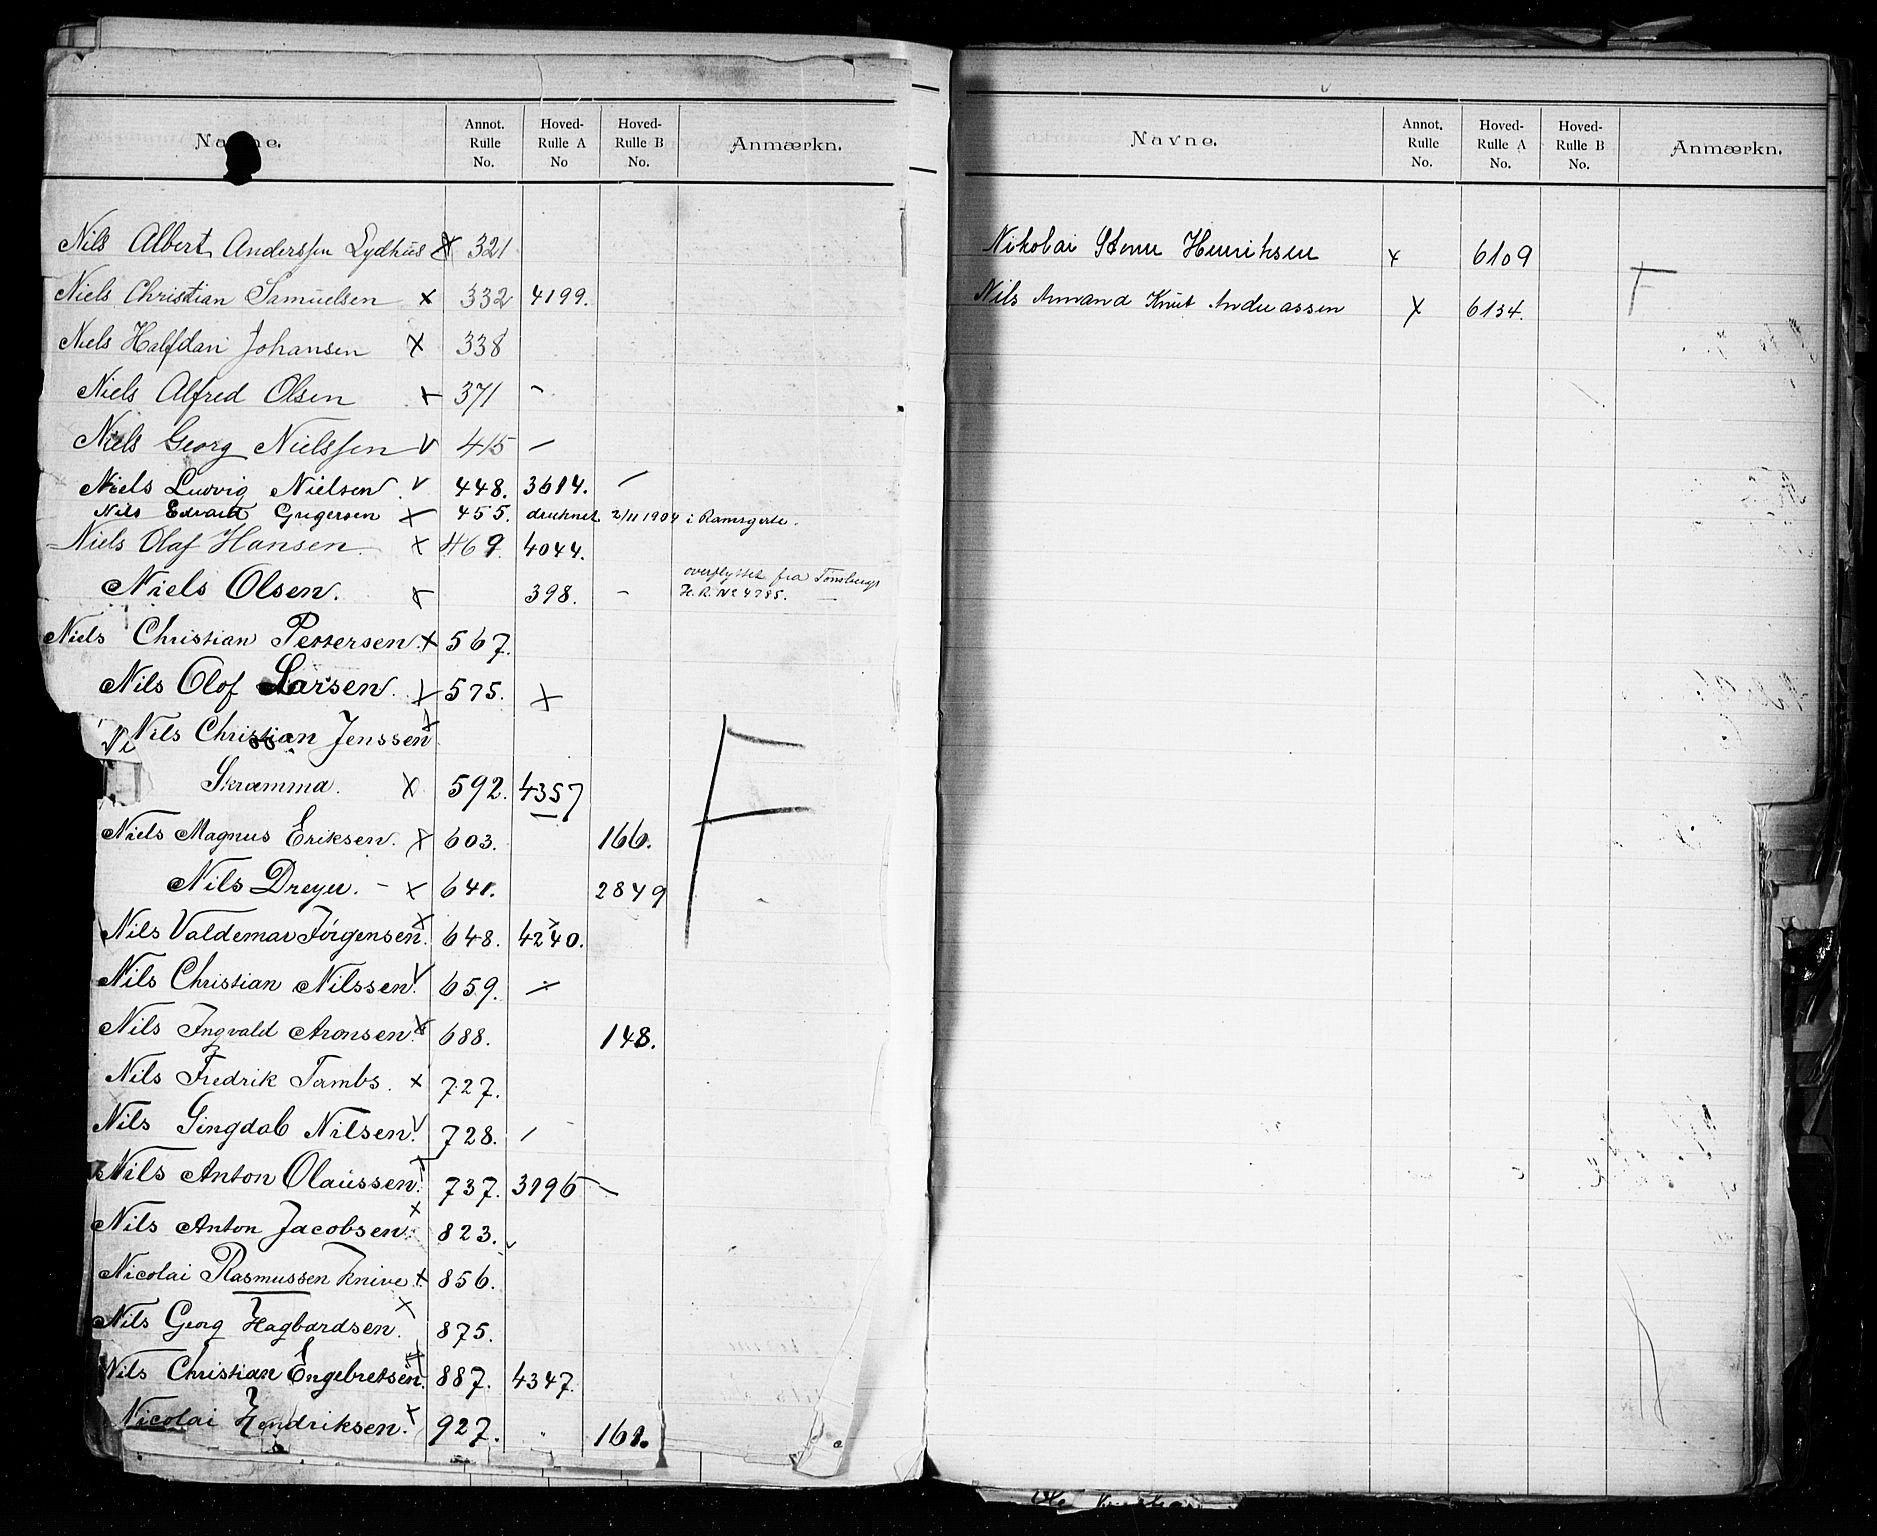 Navne. Annot. Rulle No. Hoved-Rulle A No Hoved-Rulle B No. Anmærkn.
Nils Albert Anderssen Lydhus X 321
Niels Christian Samuelsen x 332 4199.
Niels Halfdan Johansen X 338
Niels Alfred Olsen x 371 -
Niels Georg Nielssen V 415 -
Niels Ludvig Nielsen. v 448. 3614. -
Nils Edvard Gregersen x 455. druknet 2/11 1904 i Ramsgate.
Niels Olaf Hansen x 469. 4044.
overflyttet fra Tønsbergs
Niels Olsen. x 398. - H.R. No 4785.
Niels Christian Pettersen. x 567.
Nils Olof Larsen. x 575. x
Nils Christian Jenssen x
Ni
Skramma. X 592. 4357
F
Niels Magnus Eriksen. x 603. 166.
Nils Dreyer. - x 641. 2849
Nils Valdemar Jörgensen. x 648. 4240.
Nils Christian Nilssen. V 659. -
Nils Ingvald Aronsen. x 688. 148.
Nils Fredrik Tambs. x 727.
Nils Singdal Nilsen. V 728. /
Nils Anton Olaussen. x 737. 3196 -
Nils Anton Jacobsen. x 823.
Nicolai Rasmussen Knive. x 856.
Nils Georg Hagbardsen. x 875.
Nils Christian Engebretsen. x 887. 4347.
Nicolai Hendriksen. x 927. 161.
Navne. Annot. Rulle No. Hoved-Rulle A No. Hoved-Rulle B No. Anmærkn.
Nikolai Henriksen x 6109
F
Nils Amand Knut Andreassen x 6134.